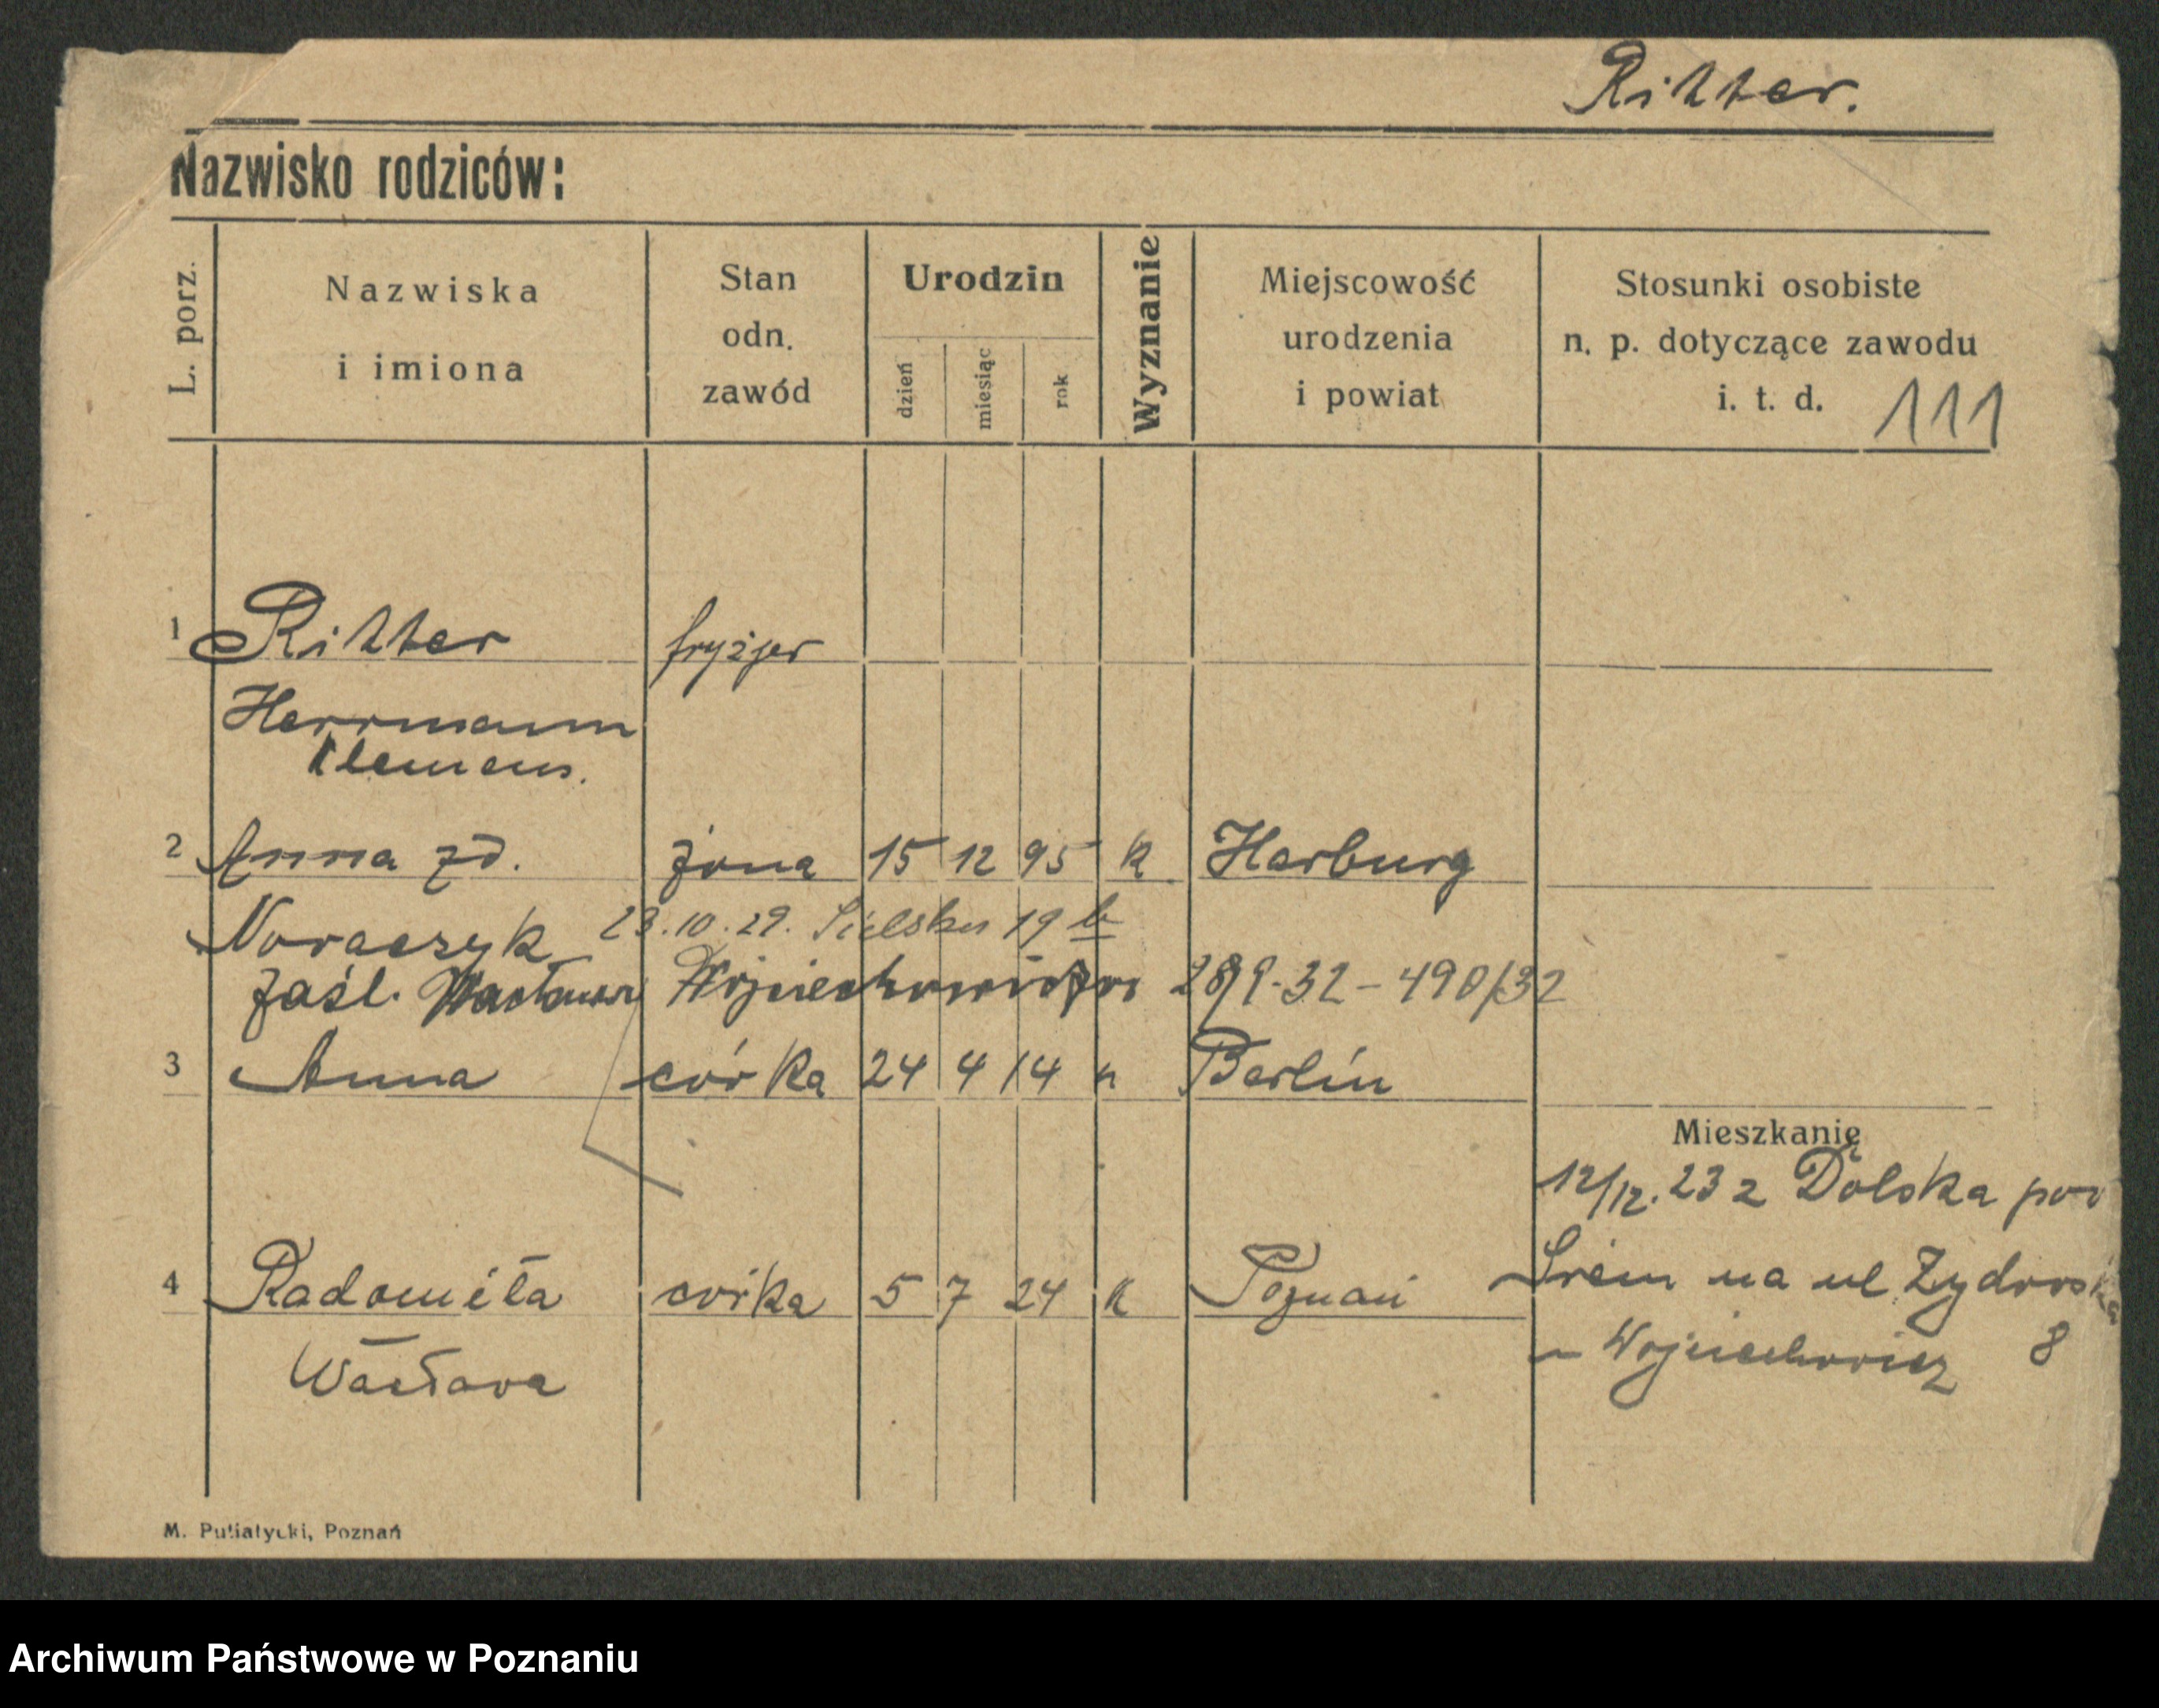 Ritter.
Nazwisko rodziców:
L. porz.
Nazwiska
i imiona
Stan
odn.
zawód
Urodzin
dzień
miesiąc
rok
Wyznanie
Miejscowość
urodzenia
i powiat
Stosunki osobiste
n. p. dotyczące zawodu
i. t. d.
111
1 Ritter fryzjer
Herrmann
Klemens.
2 Anna zd. żona 15 12 95 k Harburg
Noraczyk 23.10.29. 19 b
zaśl. Wacławowi Wojciechowiczowi 28/9.32 - 490/32
3 Anna córka 24 4 14 k Berlin
Mieszkanie
12/12. 23 z Dolska pow
Śrem na ul Żydowska
4 Radomiła córka 5 7 24 k Poznań
~ Wojciechowicz 8
Wacława
M. Putiatycki, Poznań
Archiwum Państwowe w Poznaniu